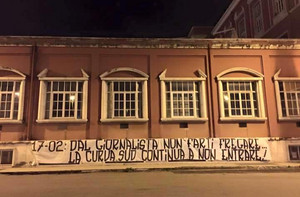 17-02: DAL GIORNALISTA NON FARTI FREGARE...
LA CURVA SUD CONTINUA A NON ENTRARE!